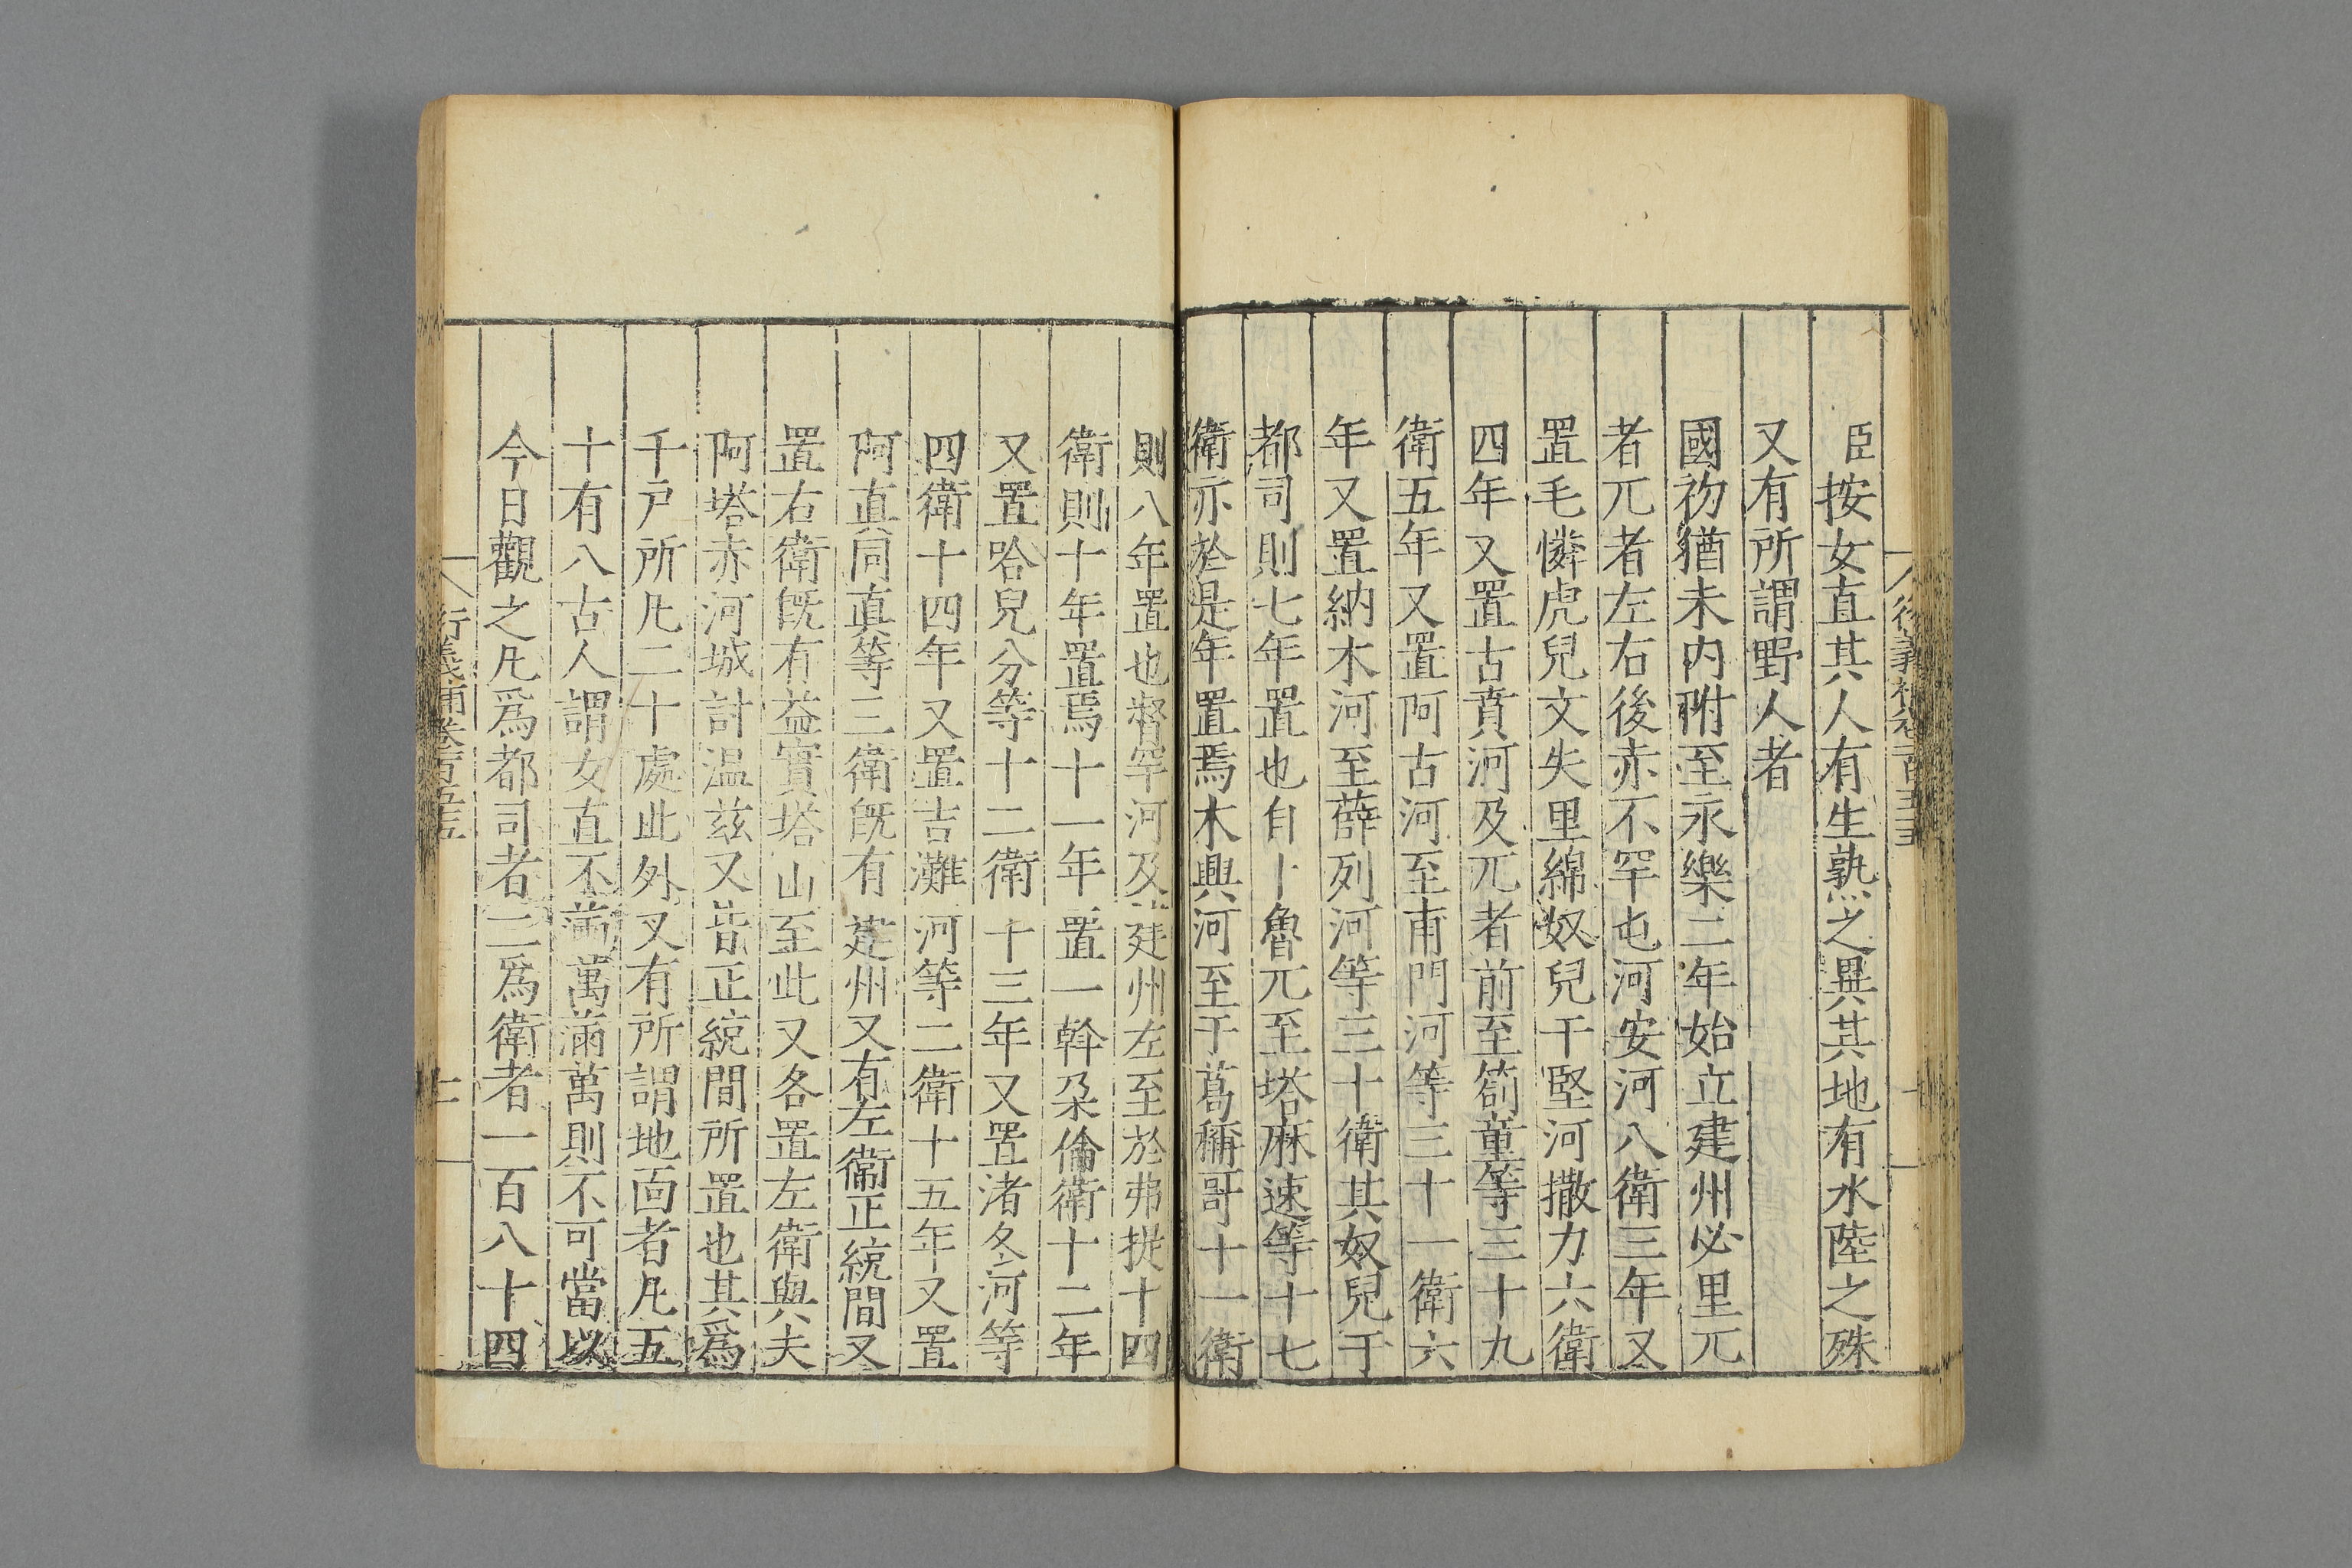 臣按女直其人有生熟之異其地有水陸之殊
又有所謂野人者
國初猶未內附至永樂二年始立建州必里兀
者兀者左右後赤不罕屯河安河八衛三年又
置毛憐虎兒文失里綿奴兒干堅河撒力六衛
四年又置古賁河及兀者前至箚童等三十九
衛五年又置阿古河至甫門河等三十一衛六
年又置納木河至薛列河等三十衛其奴兒于
都司則七年置也自卜魯兀至塔麻速等十七
衛亦於是年置焉木興河至干葛稱哥十一衛
則八年置也督罕河及建州左至於弗提十四
衛則十年置焉十一年置一斡朵倫衛十二年
又置哈兒分等十二衛十三年又置渚冬河等
四衛十四年又置吉灘河等二衛十五年又置
阿真同真等三衛旣有建州又有左衛正統間又
置右衛旣有益實塔山至此又各置左衛與夫
阿塔赤河城討温兹又皆正統間所置也其爲
千戶所凡二十處此外又有所謂地面者凡五
十有八古人謂女直不滿萬滿萬則不可當以
今日觀之凡爲都司者二爲衛者一百八十四